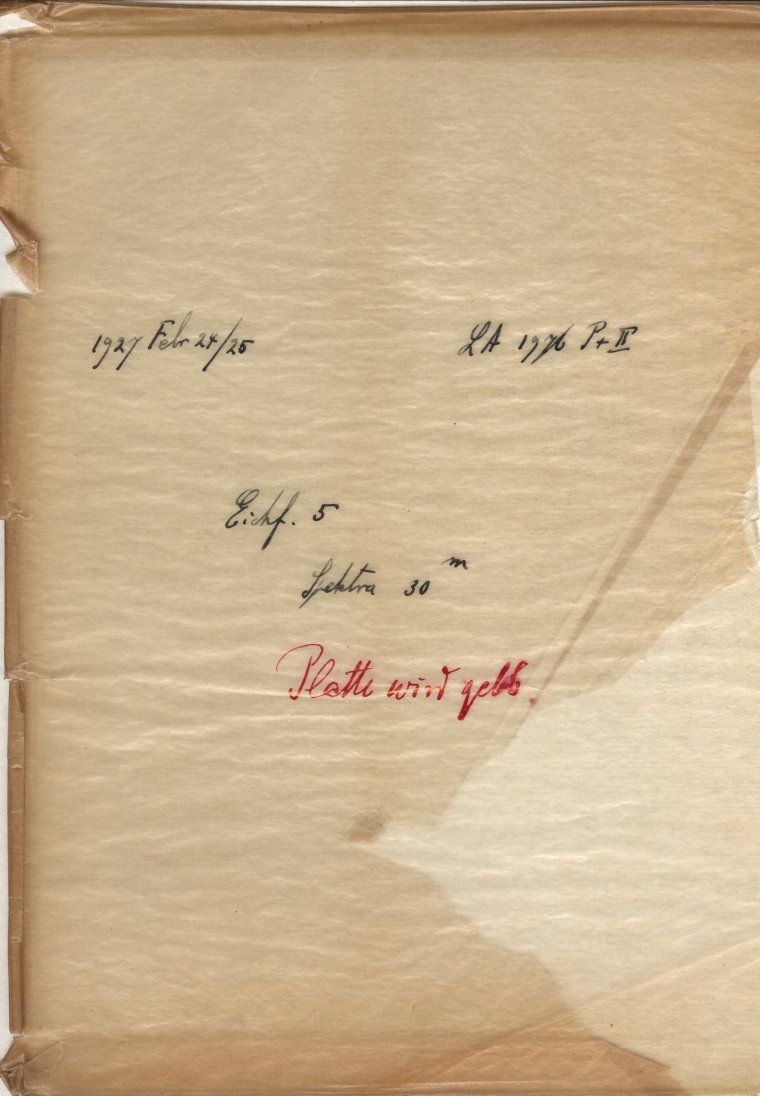 1927 Febr 24/25
LA 1976 P+II
Eichf. 5
Spektra 30 m
Platte wird gelb.